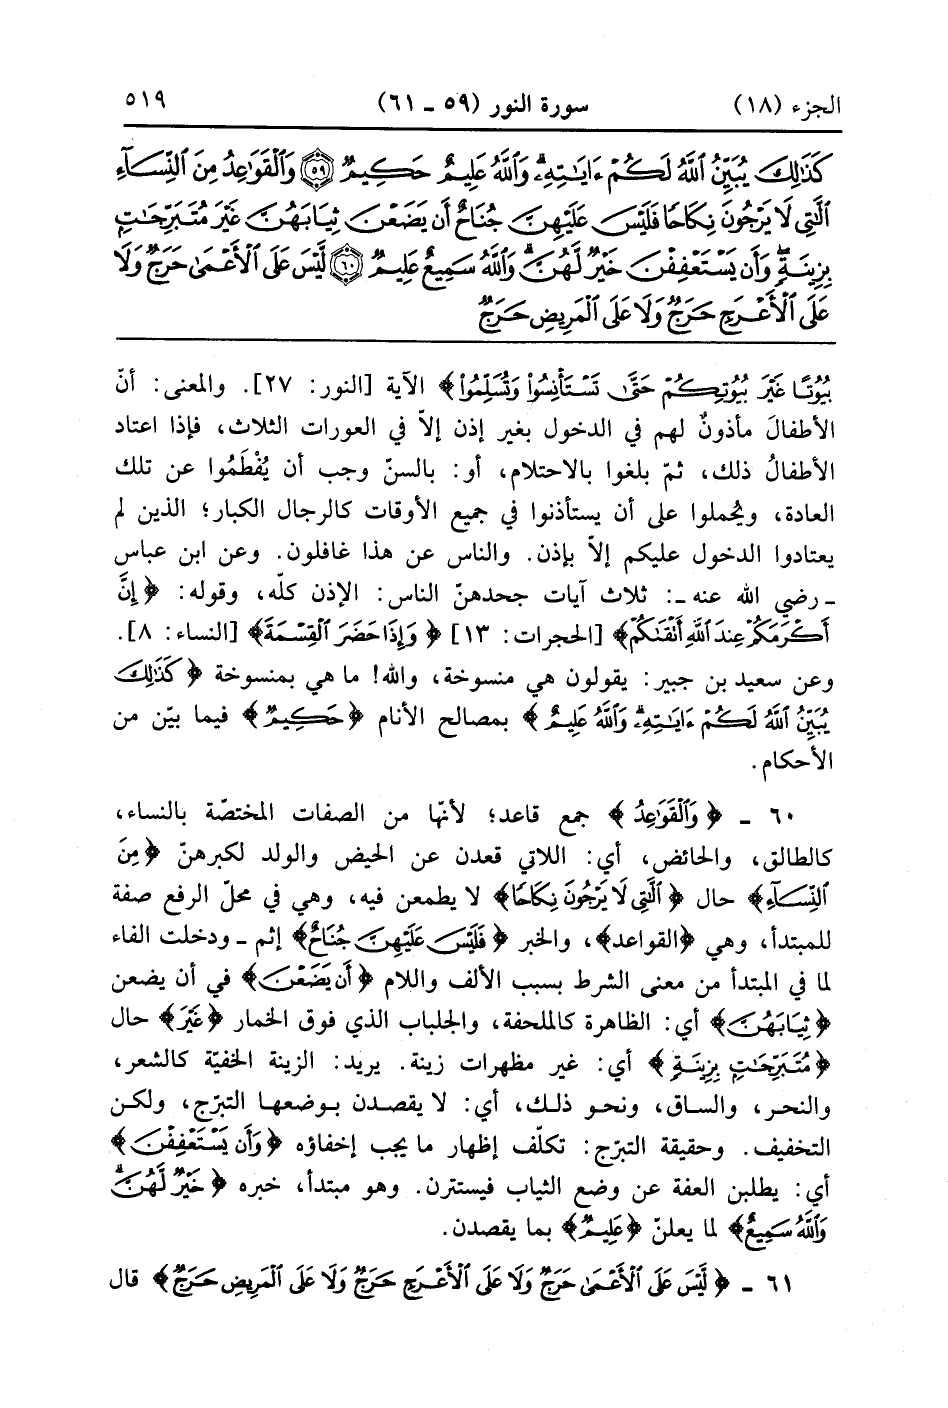 الجزء (١٨)
سورة النور (٥٩ ـ ٦١)
٥١٩
كَذَٰلِكَ يُبَيِّنُ ٱللَّهُ لَكُمْ ءَايَٰتِهِۦۗ وَٱللَّهُ عَلِيمٌ حَكِيمٌ ﴿٥٩﴾ وَٱلْقَوَٰعِدُ مِنَ ٱلنِّسَآءِ
ٱلَّٰتِى لَا يَرْجُونَ نِكَاحًا فَلَيْسَ عَلَيْهِنَّ جُنَاحٌ أَن يَضَعْنَ ثِيَابَهُنَّ غَيْرَ مُتَبَرِّجَٰتٍۭ
بِزِينَةٍۖ وَأَن يَسْتَعْفِفْنَ خَيْرٌ لَّهُنَّۗ وَٱللَّهُ سَمِيعٌ عَلِيمٌ ﴿٦٠﴾ لَّيْسَ عَلَى ٱلْأَعْمَىٰ حَرَجٌ وَلَا
عَلَى ٱلْأَعْرَجِ حَرَجٌ وَلَا عَلَى ٱلْمَرِيضِ حَرَجٌ
بُيُوتًا غَيْرَ بُيُوتِكُمْ حَتَّىٰ تَسْتَأْنِسُوا۟ وَتُسَلِّمُوا۟﴾ الآية [النور: ٢٧]. والمعنى: أنّ
الأطفالَ مأذونٌ لهم في الدخول بغير إذن إلاّ في العورات الثلاث، فإذا اعتاد
الأطفالُ ذلك، ثمّ بلغوا بالاحتلام، أو: بالسنّ وجب أن يُفْطَمُوا عن تلك
العادة، ويُحملوا على أن يستأذنوا في جميع الأوقات كالرجال الكبار؛ الذين لم
يعتادوا الدخول عليكم إلاّ بإذن. والناس عن هذا غافلون. وعن ابن عباس
ـ رضي الله عنه ـ: ثلاث آيات جحدهنّ الناس: الإذن كلّه، وقوله: ﴿إِنَّ
أَكْرَمَكُمْ عِندَ ٱللَّهِ أَتْقَىٰكُمْ﴾ [الحجرات: ١٣] ﴿وَإِذَا حَضَرَ ٱلْقِسْمَةَ﴾ [النساء: ٨].
وعن سعيد بن جبير: يقولون هي منسوخة، والله! ما هي بمنسوخة ﴿كَذَٰلِكَ
يُبَيِّنُ ٱللَّهُ لَكُمْ ءَايَٰتِهِۦۗ وَٱللَّهُ عَلِيمٌ﴾ بمصالح الأنام ﴿حَكِيمٌ﴾ فيما بيّن من
الأحكام.
٦٠ ـ ﴿وَٱلْقَوَٰعِدُ﴾ جمع قاعد؛ لأنّها من الصفات المختصّة بالنساء،
كالطالق، والحائض، أي: اللاتي قعدن عن الحيض والولد لكبرهنّ ﴿مِنَ
ٱلنِّسَآءِ﴾ حال ﴿ٱلَّٰتِى لَا يَرْجُونَ نِكَاحًا﴾ لا يطمعن فيه، وهي في محلّ الرفع صفة
للمبتدأ، وهي ﴿القواعد﴾، والخبر ﴿فَلَيْسَ عَلَيْهِنَّ جُنَاحٌ﴾ إثم ـ ودخلت الفاء
لما في المبتدأ من معنى الشرط بسبب الألف واللام ﴿أَن يَضَعْنَ﴾ في أن يضعن
﴿ثِيَابَهُنَّ﴾ أي: الظاهرة كالملحفة، والجلباب الذي فوق الخمار ﴿غَيْرَ﴾ حال
﴿مُتَبَرِّجَٰتٍۭ بِزِينَةٍ﴾ أي: غير مظهرات زينة. يريد: الزينة الخفيّة كالشعر،
والنحر، والساق، ونحو ذلك، أي: لا يقصدن بوضعها التبرّج، ولكن
التخفيف. وحقيقة التبرّج: تكلّف إظهار ما يجب إخفاؤه ﴿وَأَن يَسْتَعْفِفْنَ﴾
أي: يطلبن العفة عن وضع الثياب فيستترن. وهو مبتدأ، خبره ﴿خَيْرٌ لَّهُنَّۗ
وَٱللَّهُ سَمِيعٌ﴾ لما يعلنّ ﴿عَلِيمٌ﴾ بما يقصدن.
٦١ ـ ﴿لَّيْسَ عَلَى ٱلْأَعْمَىٰ حَرَجٌ وَلَا عَلَى ٱلْأَعْرَجِ حَرَجٌ وَلَا عَلَى ٱلْمَرِيضِ حَرَجٌ﴾ قال